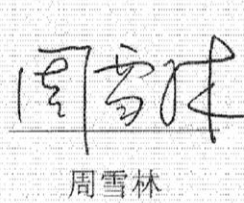 周雪林
周雪林